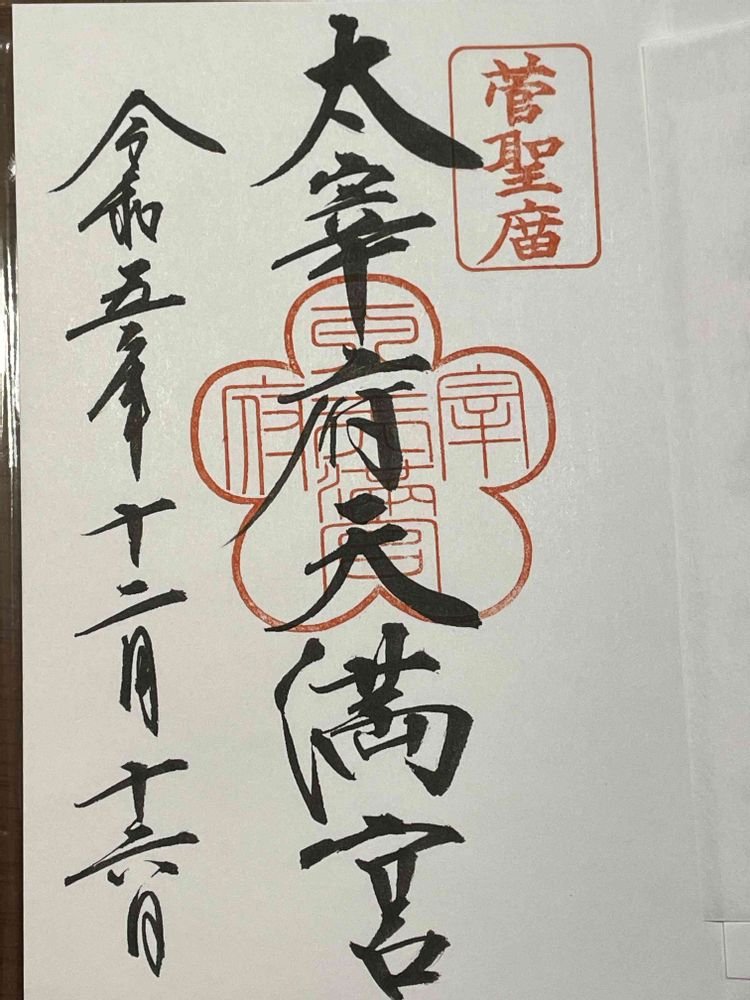 菅聖庿
太宰府天満宮
令和五年十二月十六日